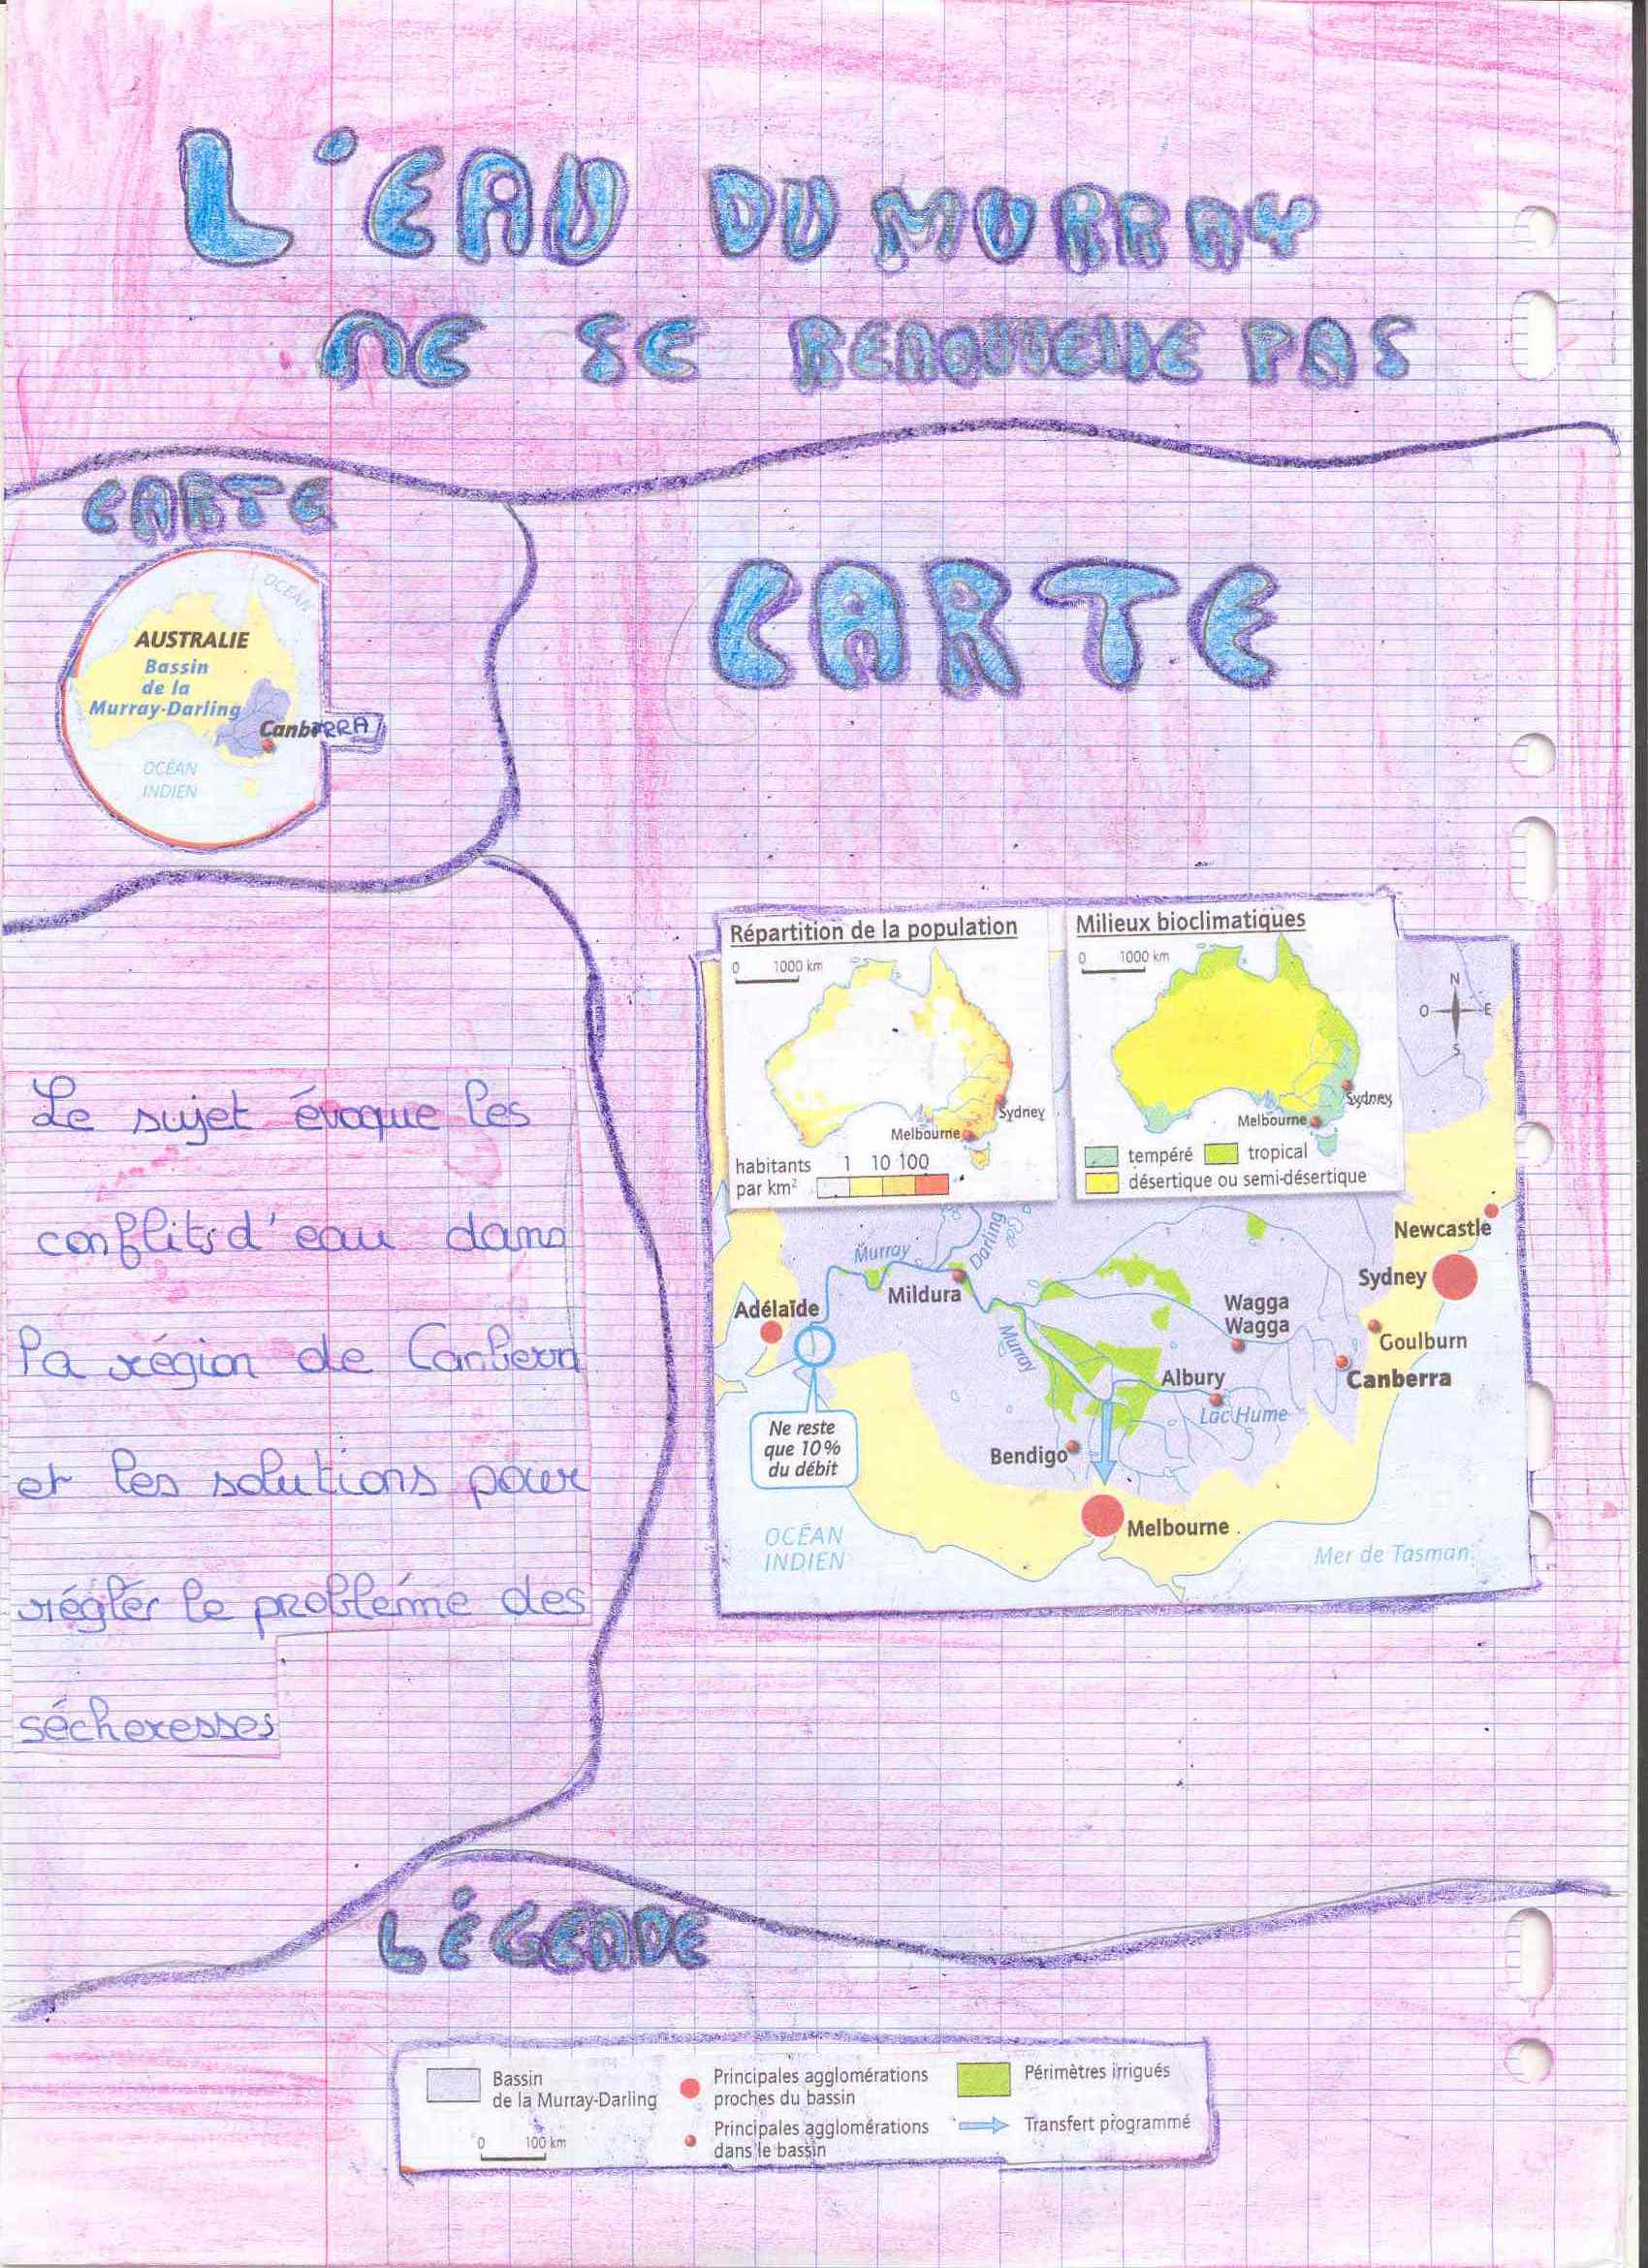 L'EAU DU MURRAY
NE SE RENOUVELLE PAS
CARTE
OCÉAN
AUSTRALIE
Bassin
de la
Murray-Darling
CanbERRA
OCÉAN
INDIEN
Le sujet évoque les
conflits d'eau dans
la région de Canberra
et les solutions pour
régler le problème des
sécheresses
CARTE
Répartition de la population
0 1000 km
Sydney
Melbourne
habitants
par km²
1 10 100
Milieux bioclimatiques
0 1000 km
Sydney
Melbourne
tempéré tropical
désertique ou semi-désertique
N
O E
S
Newcastle
Sydney
Murray
Darling
Mildura
Adélaïde
Wagga
Wagga
Goulburn
Murray
Albury
Canberra
Lac Hume
Ne reste
que 10%
du débit
Bendigo
Melbourne
OCÉAN
INDIEN
Mer de Tasman
LÉGENDE
Bassin
de la Murray-Darling
0 100 km
Principales agglomérations
proches du bassin
Principales agglomérations
dans le bassin
Périmètres irrigués
Transfert programmé